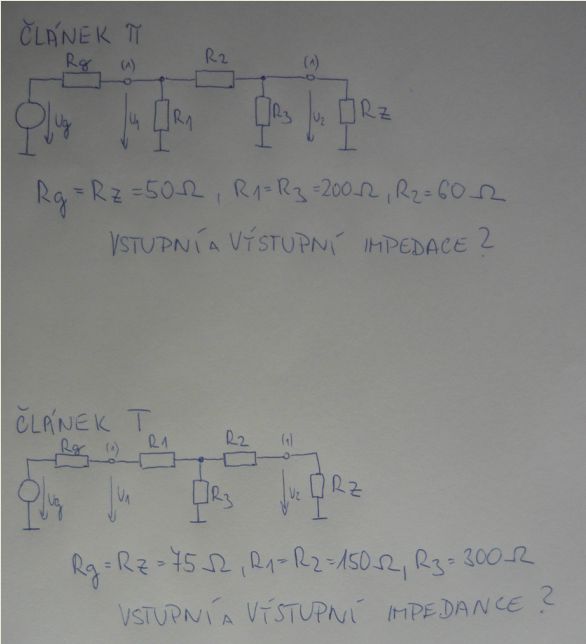 ČLÁNEK Π
Rg (1) R2 (1)
Ug U1 R1 R3 U2 Rz
Rg = Rz = 50Ω, R1=R3=200Ω, R2=60Ω
VSTUPNÍ A VÝSTUPNÍ IMPEDACE?
ČLÁNEK T
Rg (1) R1 R2 (1)
Ug U1 R3 U2 Rz
Rg = Rz = 75Ω, R1=R2=150Ω, R3=300Ω
VSTUPNÍ A VÝSTUPNÍ IMPEDANCE?